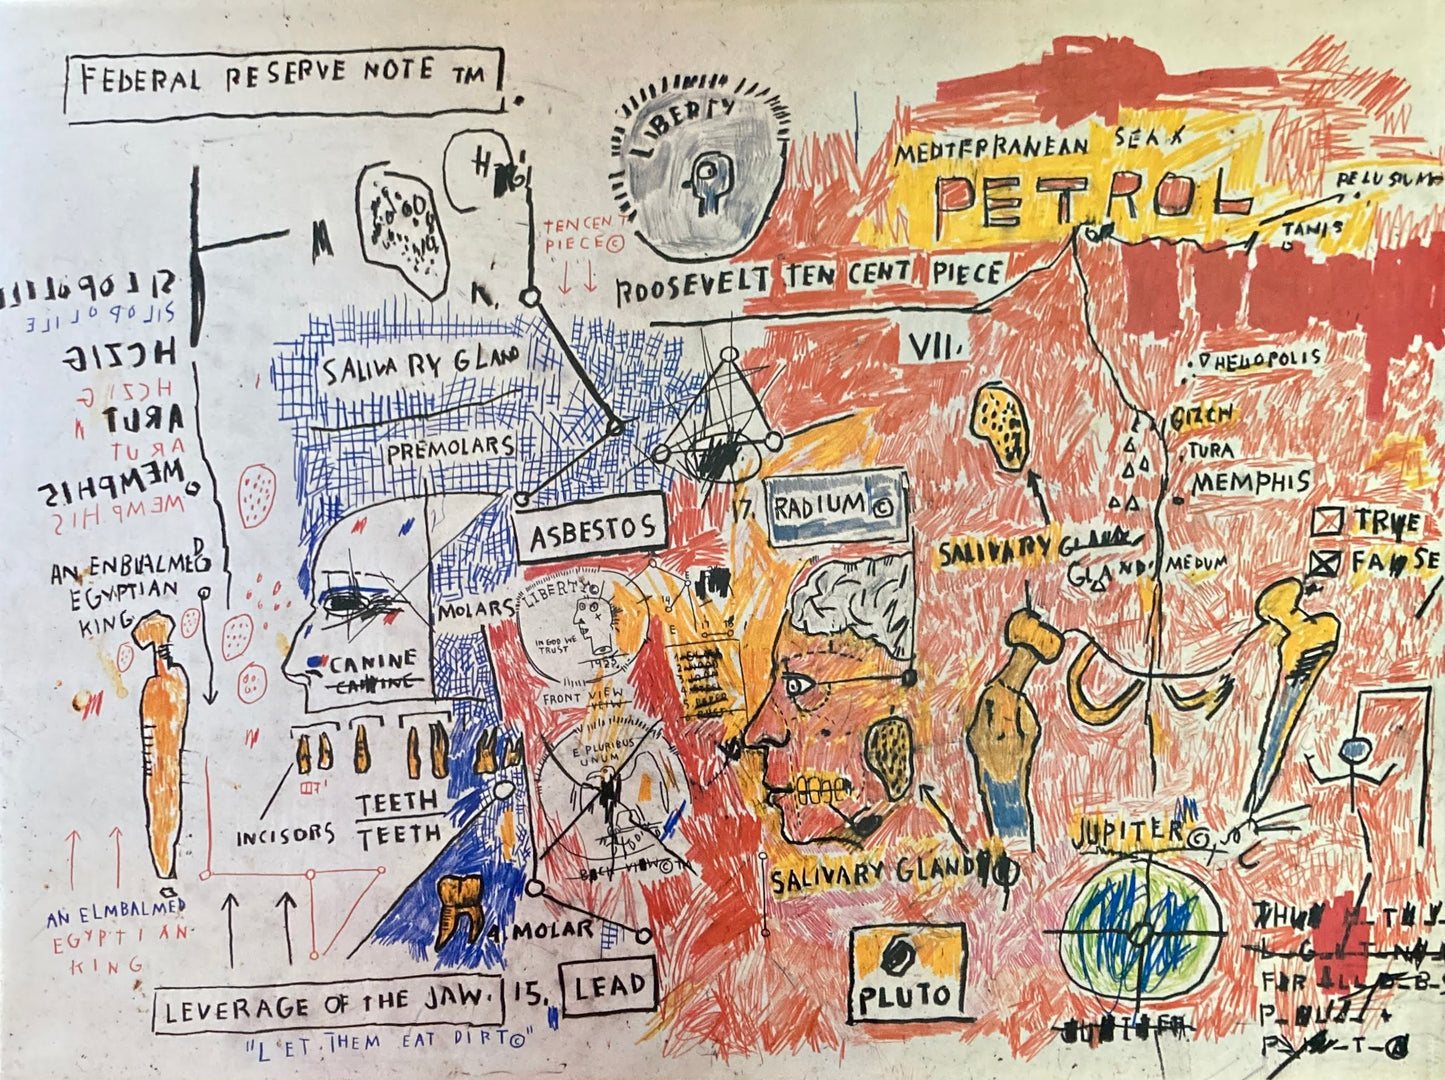 FEDERAL RESERVE NOTE TM
LIBERTY
TEN CENT
PIECE ©
ROOSEVELT TEN CENT PIECE
VII.
MEDTERRANEAN SEA X
PETROL
PELUSIUM
TANIS
▽ HELIOPOLIS
GIZEH
TURA
MEMPHIS
MEDUM
TRUE
FALSE
SILOPOLILE
HCZIG
HCZIG
ARUT
ARUT
MEMPHIS
MEMPHIS
AN ENBLALMED
EGYPTIAN
KING
SALIVARY GLAND
PREMOLARS
ASBESTOS
17. RADIUM ©
SALIVARY GLAND
GLAND
MOLARS
CANINE
CANINE
LIBERTY ©
IN GOD WE
TRUST
FRONT VIEW
VEIW
E PLURIBUS
UNUM
BACK VIEW © TM
INCISORS
TEETH
TEETH
SALIVARY GLAND
JUPITER ©
AN ELMBALMED
EGYPTIAN
KING
4. MOLAR
LEVERAGE OF THE JAW. 15. LEAD
"L'ET THEM EAT DIRT©"
PLUTO
JUPITER